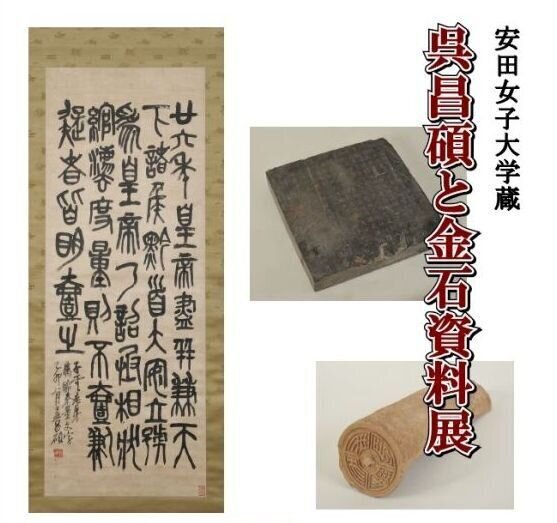 安田女子大学蔵
呉昌碩と金石資料展
廿六年皇帝盡并兼天
下諸侯黔首大安立號
為皇帝乃詔丞相狀
綰灋度量則不壹歉
疑者皆明壹之